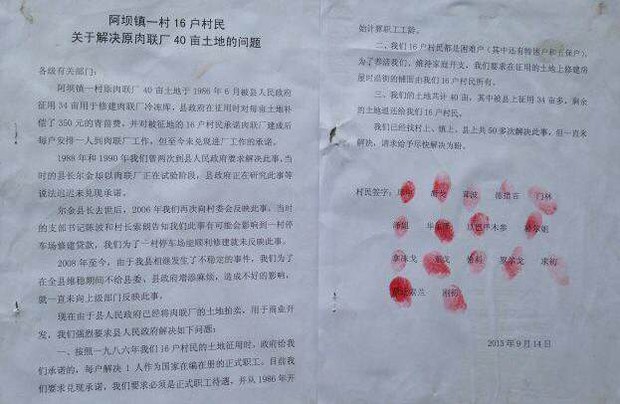 阿坝镇一村 16 户村民
关于解决原肉联厂 40 亩土地的问题
各级有关部门：
阿坝镇一村原肉联厂 40 亩土地于 1986 年 6 月被县人民政府
征用 34 亩用于修建肉联厂冷冻库，县政府在征用时对每亩土地补
偿了 350 元的青苗费，并对被征地的 16 户村民承诺肉联厂建成后
每户安排一人到肉联厂工作，但至今未兑现进厂工作的承诺。
1988 年和 1990 年我们曾两次到县人民政府要求解决此事，当
时的县长尔金却以肉联厂正在试验阶段，县政府正在研究此事等
说法迟迟未兑现承诺。
尔金县长去世后，2006 年我们再次向村委会反映此事，当时
的支部书记陈波和村长索朗告知我们此事有可能会影响到一村
停车场修建贷款，我们为了一村停车场能顺利修建就未反映此事。
2008 年至今，由于我县相继发生了不稳定的事件，我们为了
在全县维稳期间不给县委、县政府增添麻烦，造成不好的影响，
就一直未向上级部门反映此事。
现在由于县人民政府已经将肉联厂的土地拍卖，用于商业开
发，我们强烈要求县人民政府解决如下问题：
一、按照一九八六年我们 16 户村民的土地征用时，政府给我
们承诺的，每户解决 1 人作为国家在编在册的正式职工。目前我
们要求兑现承诺，我们要求必须是正式职工待遇，并从 1986 年开
始计算职工工龄。
二、我们 16 户村民都是困难户（其中还有特困户和五保户），
为了养活我们，维持家庭开支，我们要求在征用的土地上修建房
屋时沿街的铺面由我们 16 户村民所有。
三、我们的土地共计 40 亩，其中被县上征用 34 亩多，剩余
的土地退还给我们 16 户村民。
我们已经找村上、镇上、县上共 50 多次解决此事，但一直未
解决，请求给予尽快解决为盼。
村民签字：
门林
求初
2013 年 9 月 14 日